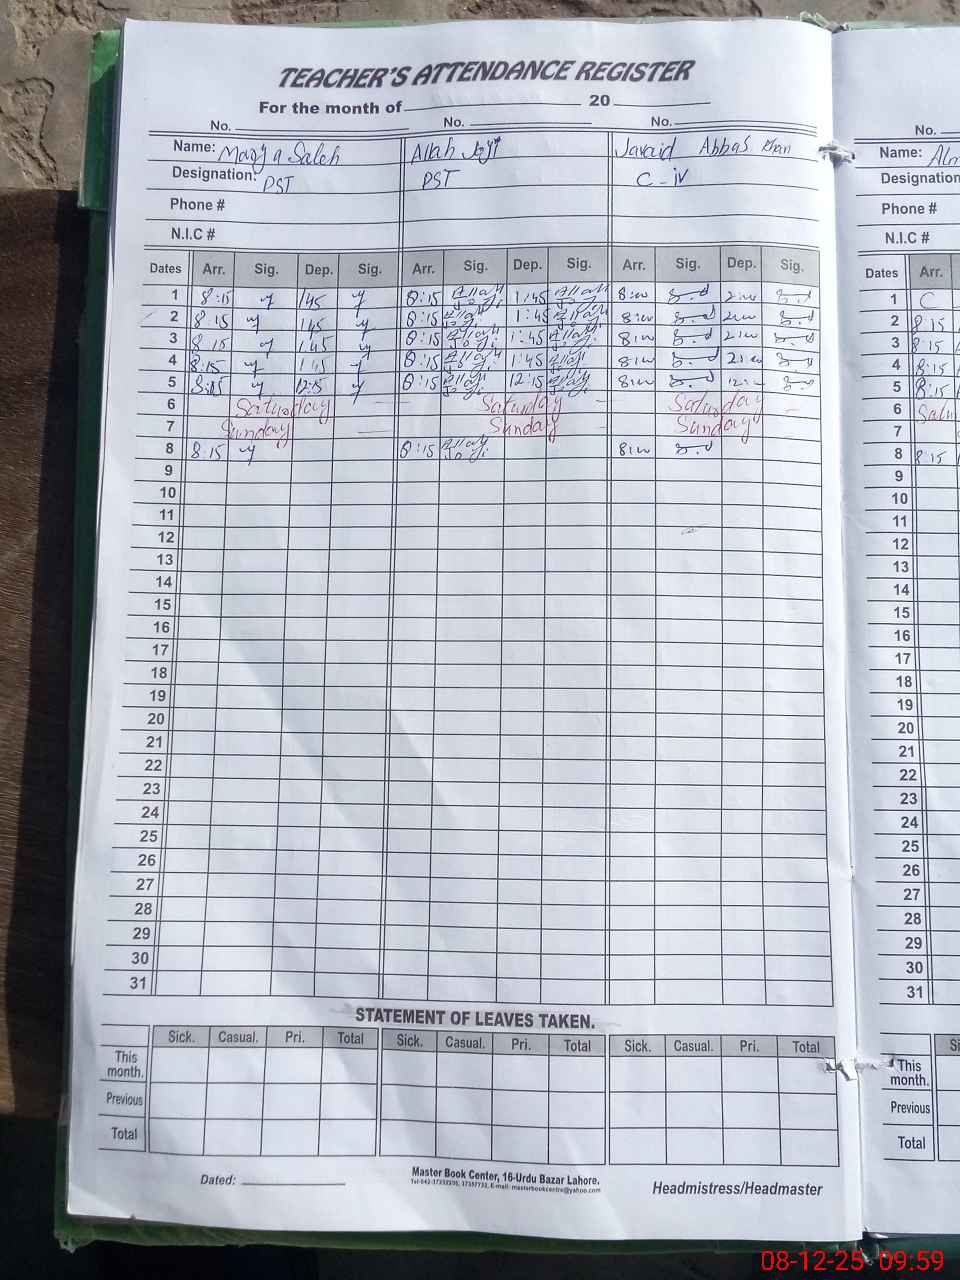 TEACHER'S ATTENDANCE REGISTER
For the month of 20
No. No. No. No.
Name: Marya Saleh Allah Joji Javaid Abbas Khan Name:
Designation: PST PST C-iv Designation
Phone # Phone #
N.I.C # N.I.C #
Dates Arr. Sig. Dep. Sig. Arr. Sig. Dep. Sig. Arr. Sig. Dep. Sig. Dates Arr.
1 8:15 1:45 8:15 Allah Joji 1:45 Allah Joji 8:00 2:00 1 C
2 8:15 1:45 8:15 Allah Joji 1:45 Allah Joji 8:00 2:00 2 8:15
3 8:15 1:45 8:15 Allah Joji 1:45 Allah Joji 8:00 2:00 3 8:15
4 8:15 1:45 8:15 Allah Joji 1:45 Allah Joji 8:00 2:00 4 8:15
5 8:15 12:15 8:15 Allah Joji 12:15 Allah Joji 8:00 12:00 5 8:15
6 Saturday Saturday Saturday 6
7 Sunday Sunday Sunday 7
8 8:15 8:15 Allah Joji 8:00 8 8:15
9 9
10 10
11 11
12 12
13 13
14 14
15 15
16 16
17 17
18 18
19 19
20 20
21 21
22 22
23 23
24 24
25 25
26 26
27 27
28 28
29 29
30 30
31 31
STATEMENT OF LEAVES TAKEN.
Sick. Casual. Pri. Total Sick. Casual. Pri. Total Sick. Casual. Pri. Total
This month. This month.
Previous Previous
Total Total
Dated: Master Book Center, 16-Urdu Bazar Lahore.
Headmistress/Headmaster
08-12-25 09:59